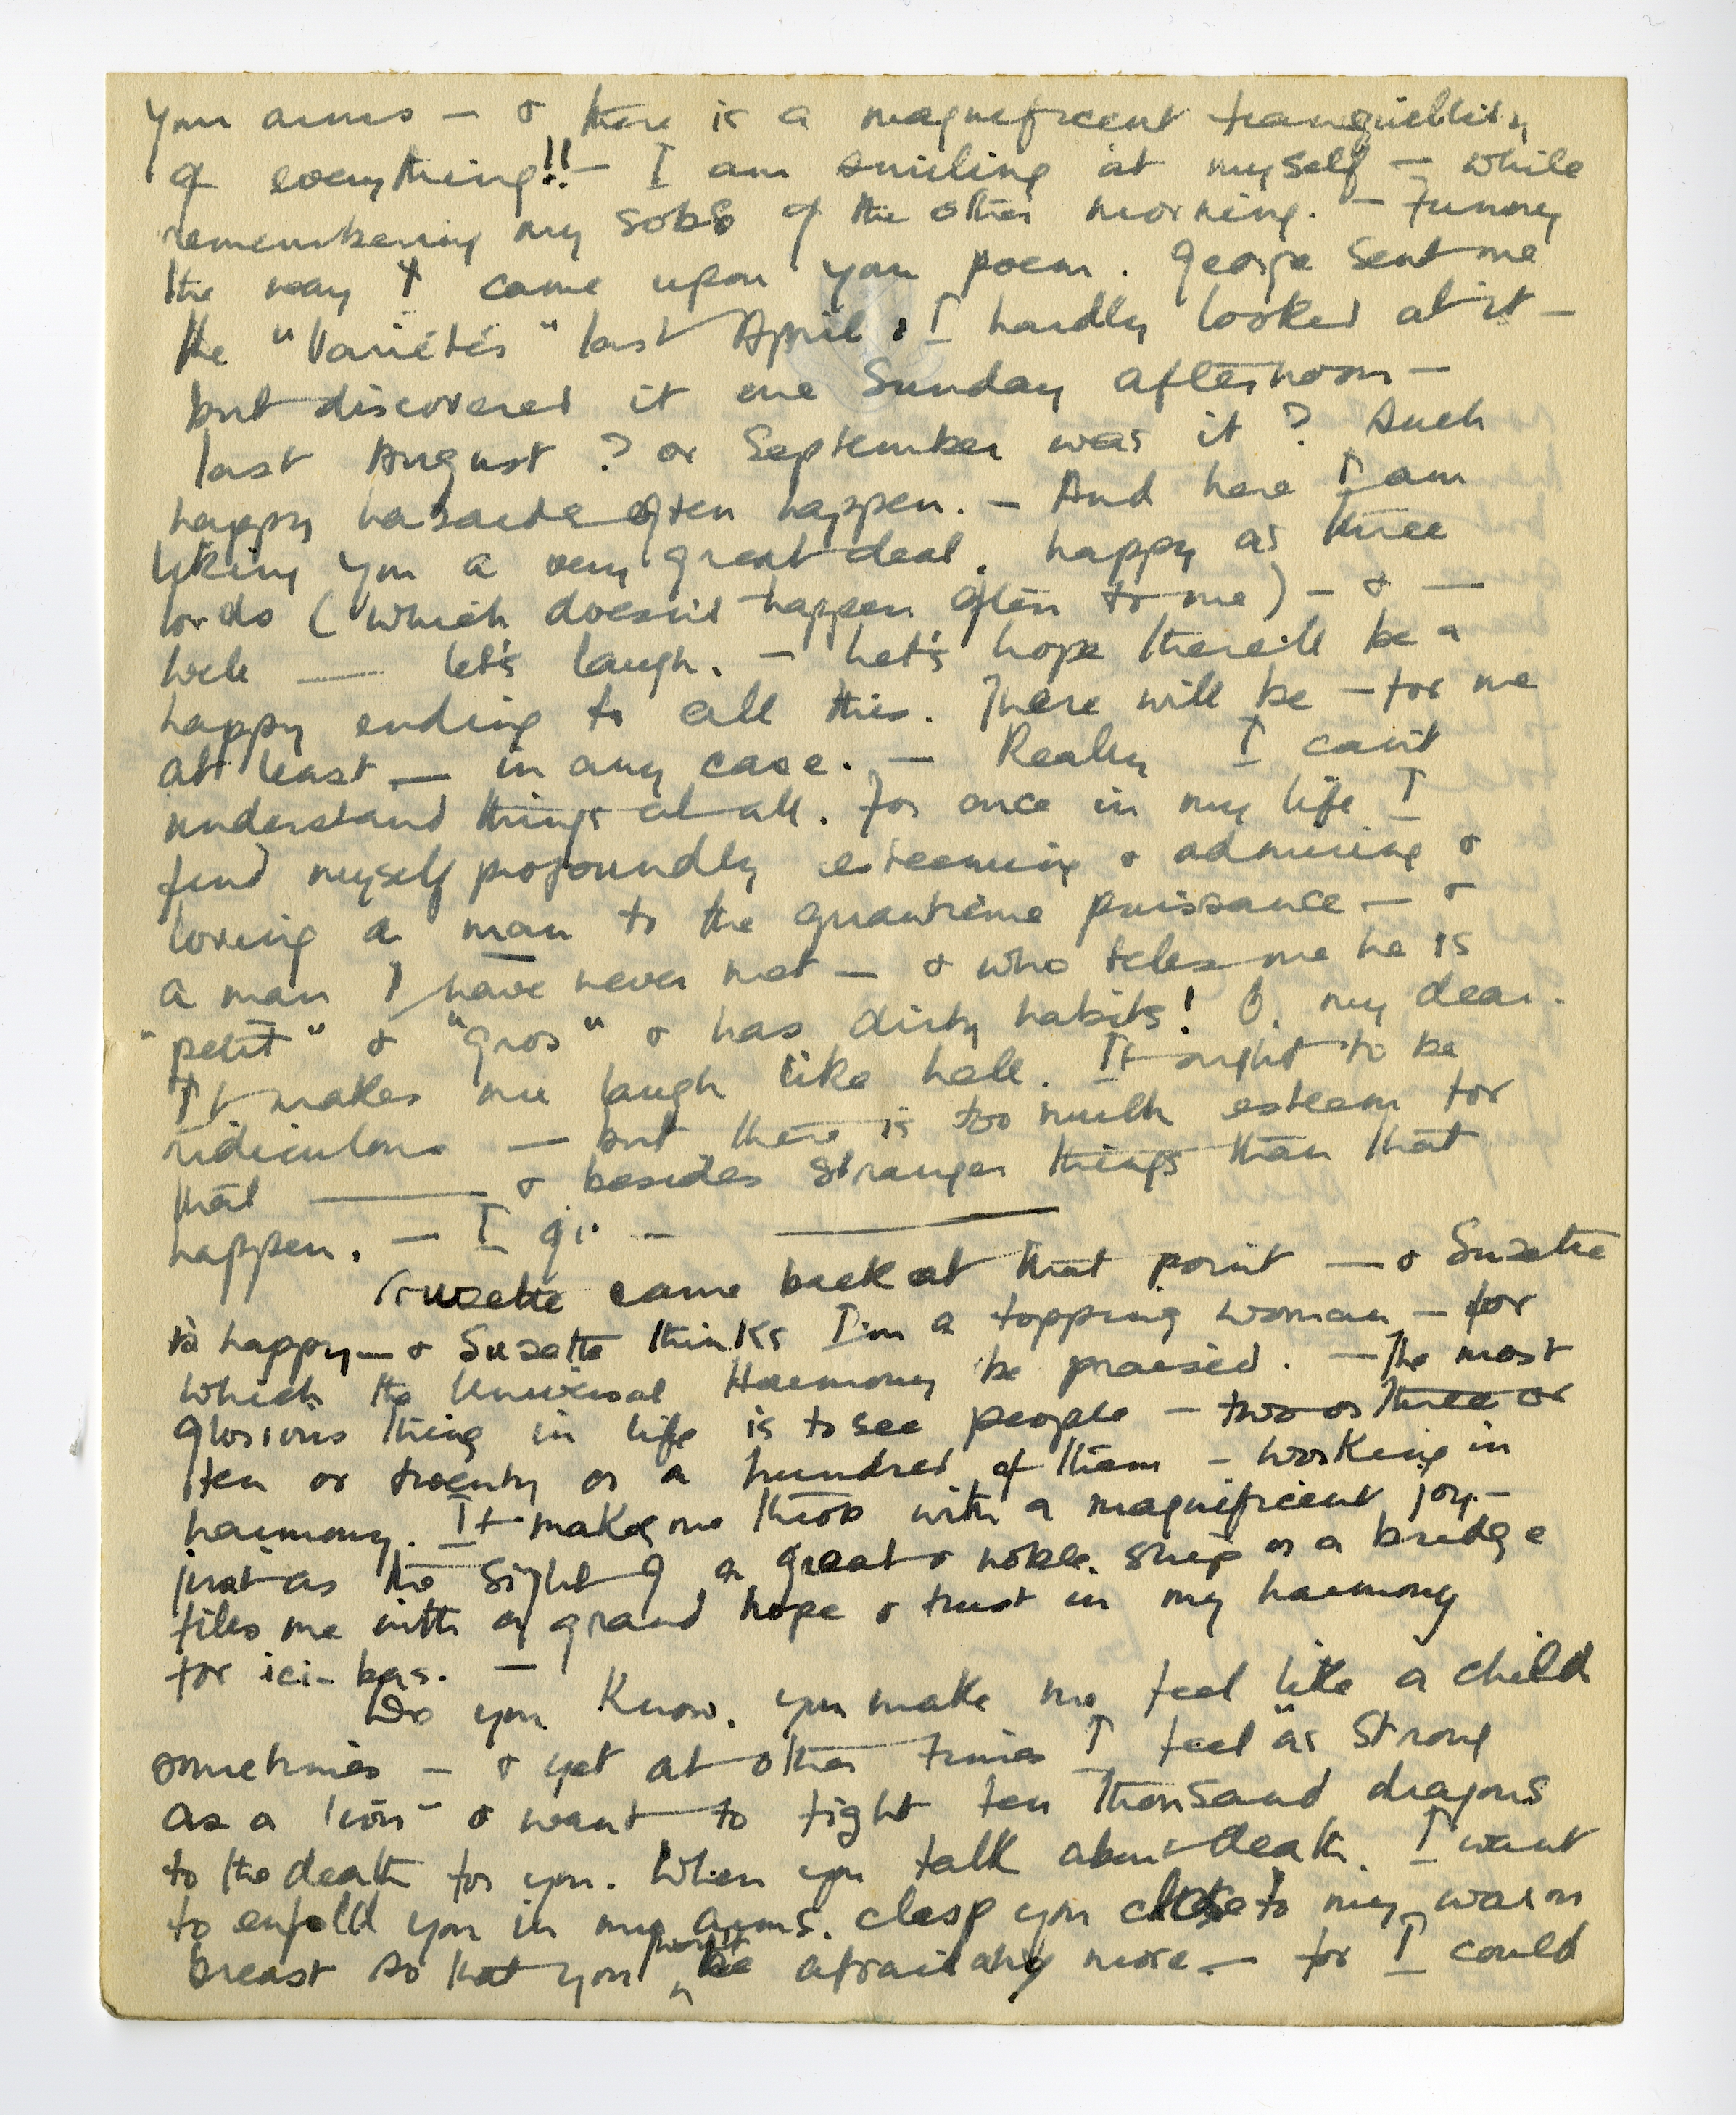 your arms — & there is a magnificent tranquillity
of everything!! — I am smiling at myself — while
remembering my sobs of the other morning. — Funny
the way I came upon your poem. George sent me
the "Variétés" last April & I hardly looked at it —
but discovered it one Sunday afternoon —
last August ? or September was it ? Such
happy hasards often happen. — And here I am
liking you a very great deal. happy as three
lords (which doesn't happen often to me) — & —
well — let's laugh. — Let's hope there'll be a
happy ending to all this. There will be — for me
at least — in any case. — Really I can't
understand things at all. For once in my life I
find myself profoundly esteeming & admiring &
loving a man to the quantième puissance — &
a man I have never met — & who tells me he is
"petit" & "gros" & has dirty habits! O, my dear.
It makes me laugh like hell. It ought to be
ridiculous — but there is too much esteem for
that — & besides stranger things than that
happen. — I —
Suzette came back at that point — & Suzette
is happy — & Suzette thinks I'm a topping woman — for
which the Universal Harmony be praised. — The most
glorious thing in life is to see people — two or three or
ten or twenty or a hundred of them — working in
harmony. It makes me throb with a magnificent joy. —
just as the sight of a great & noble ship or a bridge
fills me with a grand hope & trust in my harmony
for ici-bas. —
Do you know. you make me feel like a child
sometimes — & yet at other times I feel as strong
as a lion — & want to fight ten thousand dragons
to the death for you. When you talk about death. I want
to enfold you in my arms. clasp you close to my warm
breast so that you won't be afraid any more — for I could